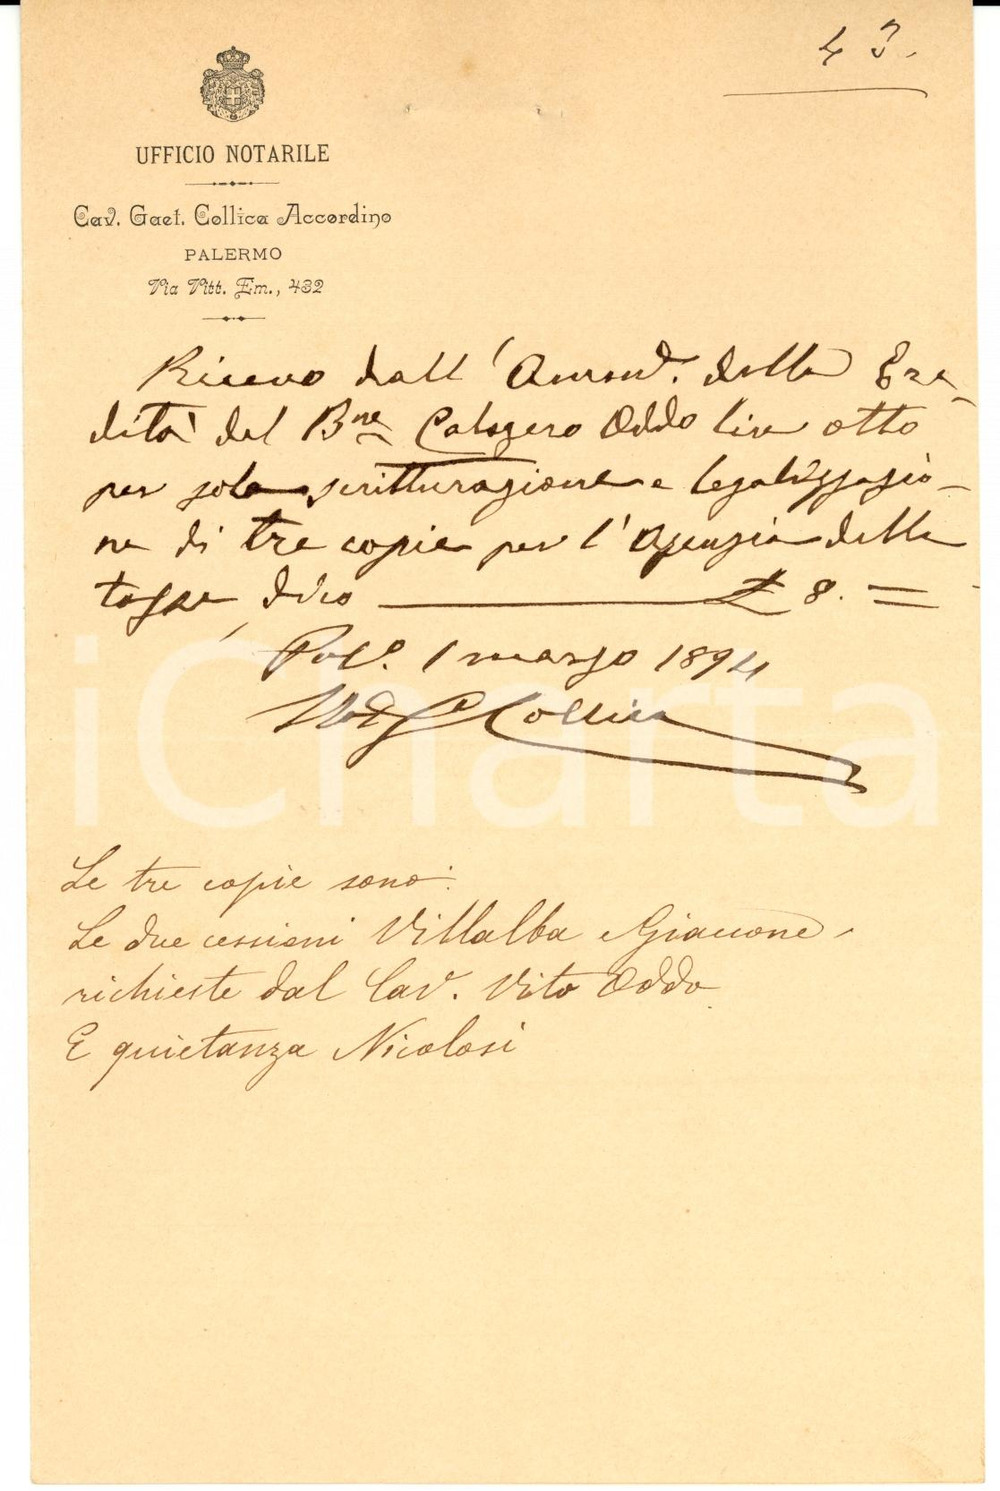 43.
UFFICIO NOTARILE
Cav. Gaet. Collica Accordino
PALERMO
Via Vitt. Em., 432
Ricevo dall'Ammd. della Ere-
dità del Bne Calogero Oddo lire otto
per sola scritturazione e legalizzazio-
ne di tre copie per l'Agenzia delle
tasse, dico £ 8. =
Pal.o 1 marzo 1894
Collica
Le tre copie sono:
Le due cessioni Villalba e Giaccone,
richieste dal Cav. Vito Oddo
E quietanza Nicolosi
iCharta